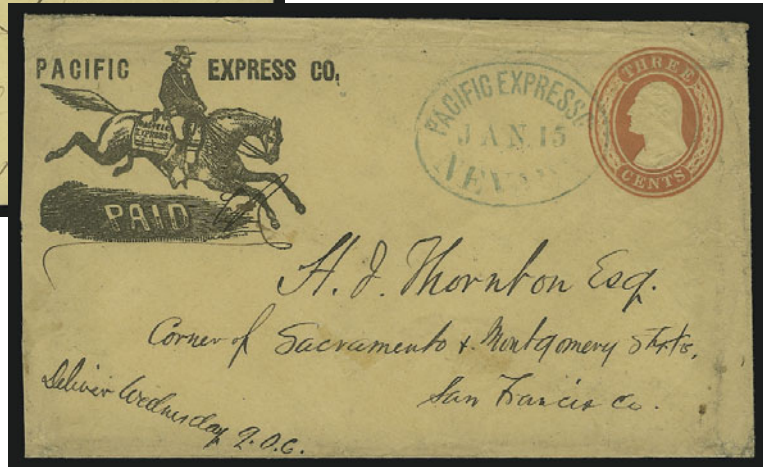 PACIFIC EXPRESS CO,
PACIFIC
EXPRESS
PAID
PACIFIC EXPRESS
JAN 15
THREE
CENTS
H. J. Thornton Esq.
Corner of Sacramento & Montgomery Strts,
San Francisco.
Deliver Wednesday